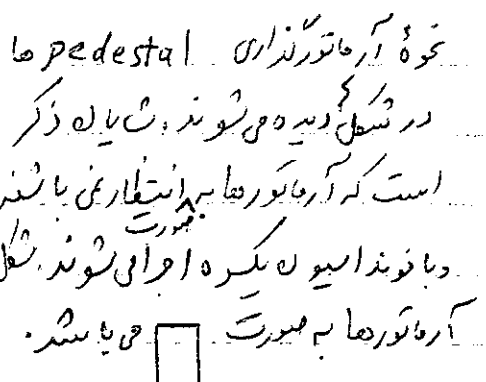 نحوهٔ آرماتورگذاری pedestal ها
در شکل دیده می‌شوند. شایان ذکر
است که آرماتورها به صورت انتظار نمی باشند
وبا فونداسیون یکسره اجرا می شوند. شکل
آرماتورها به صورت می باشد.